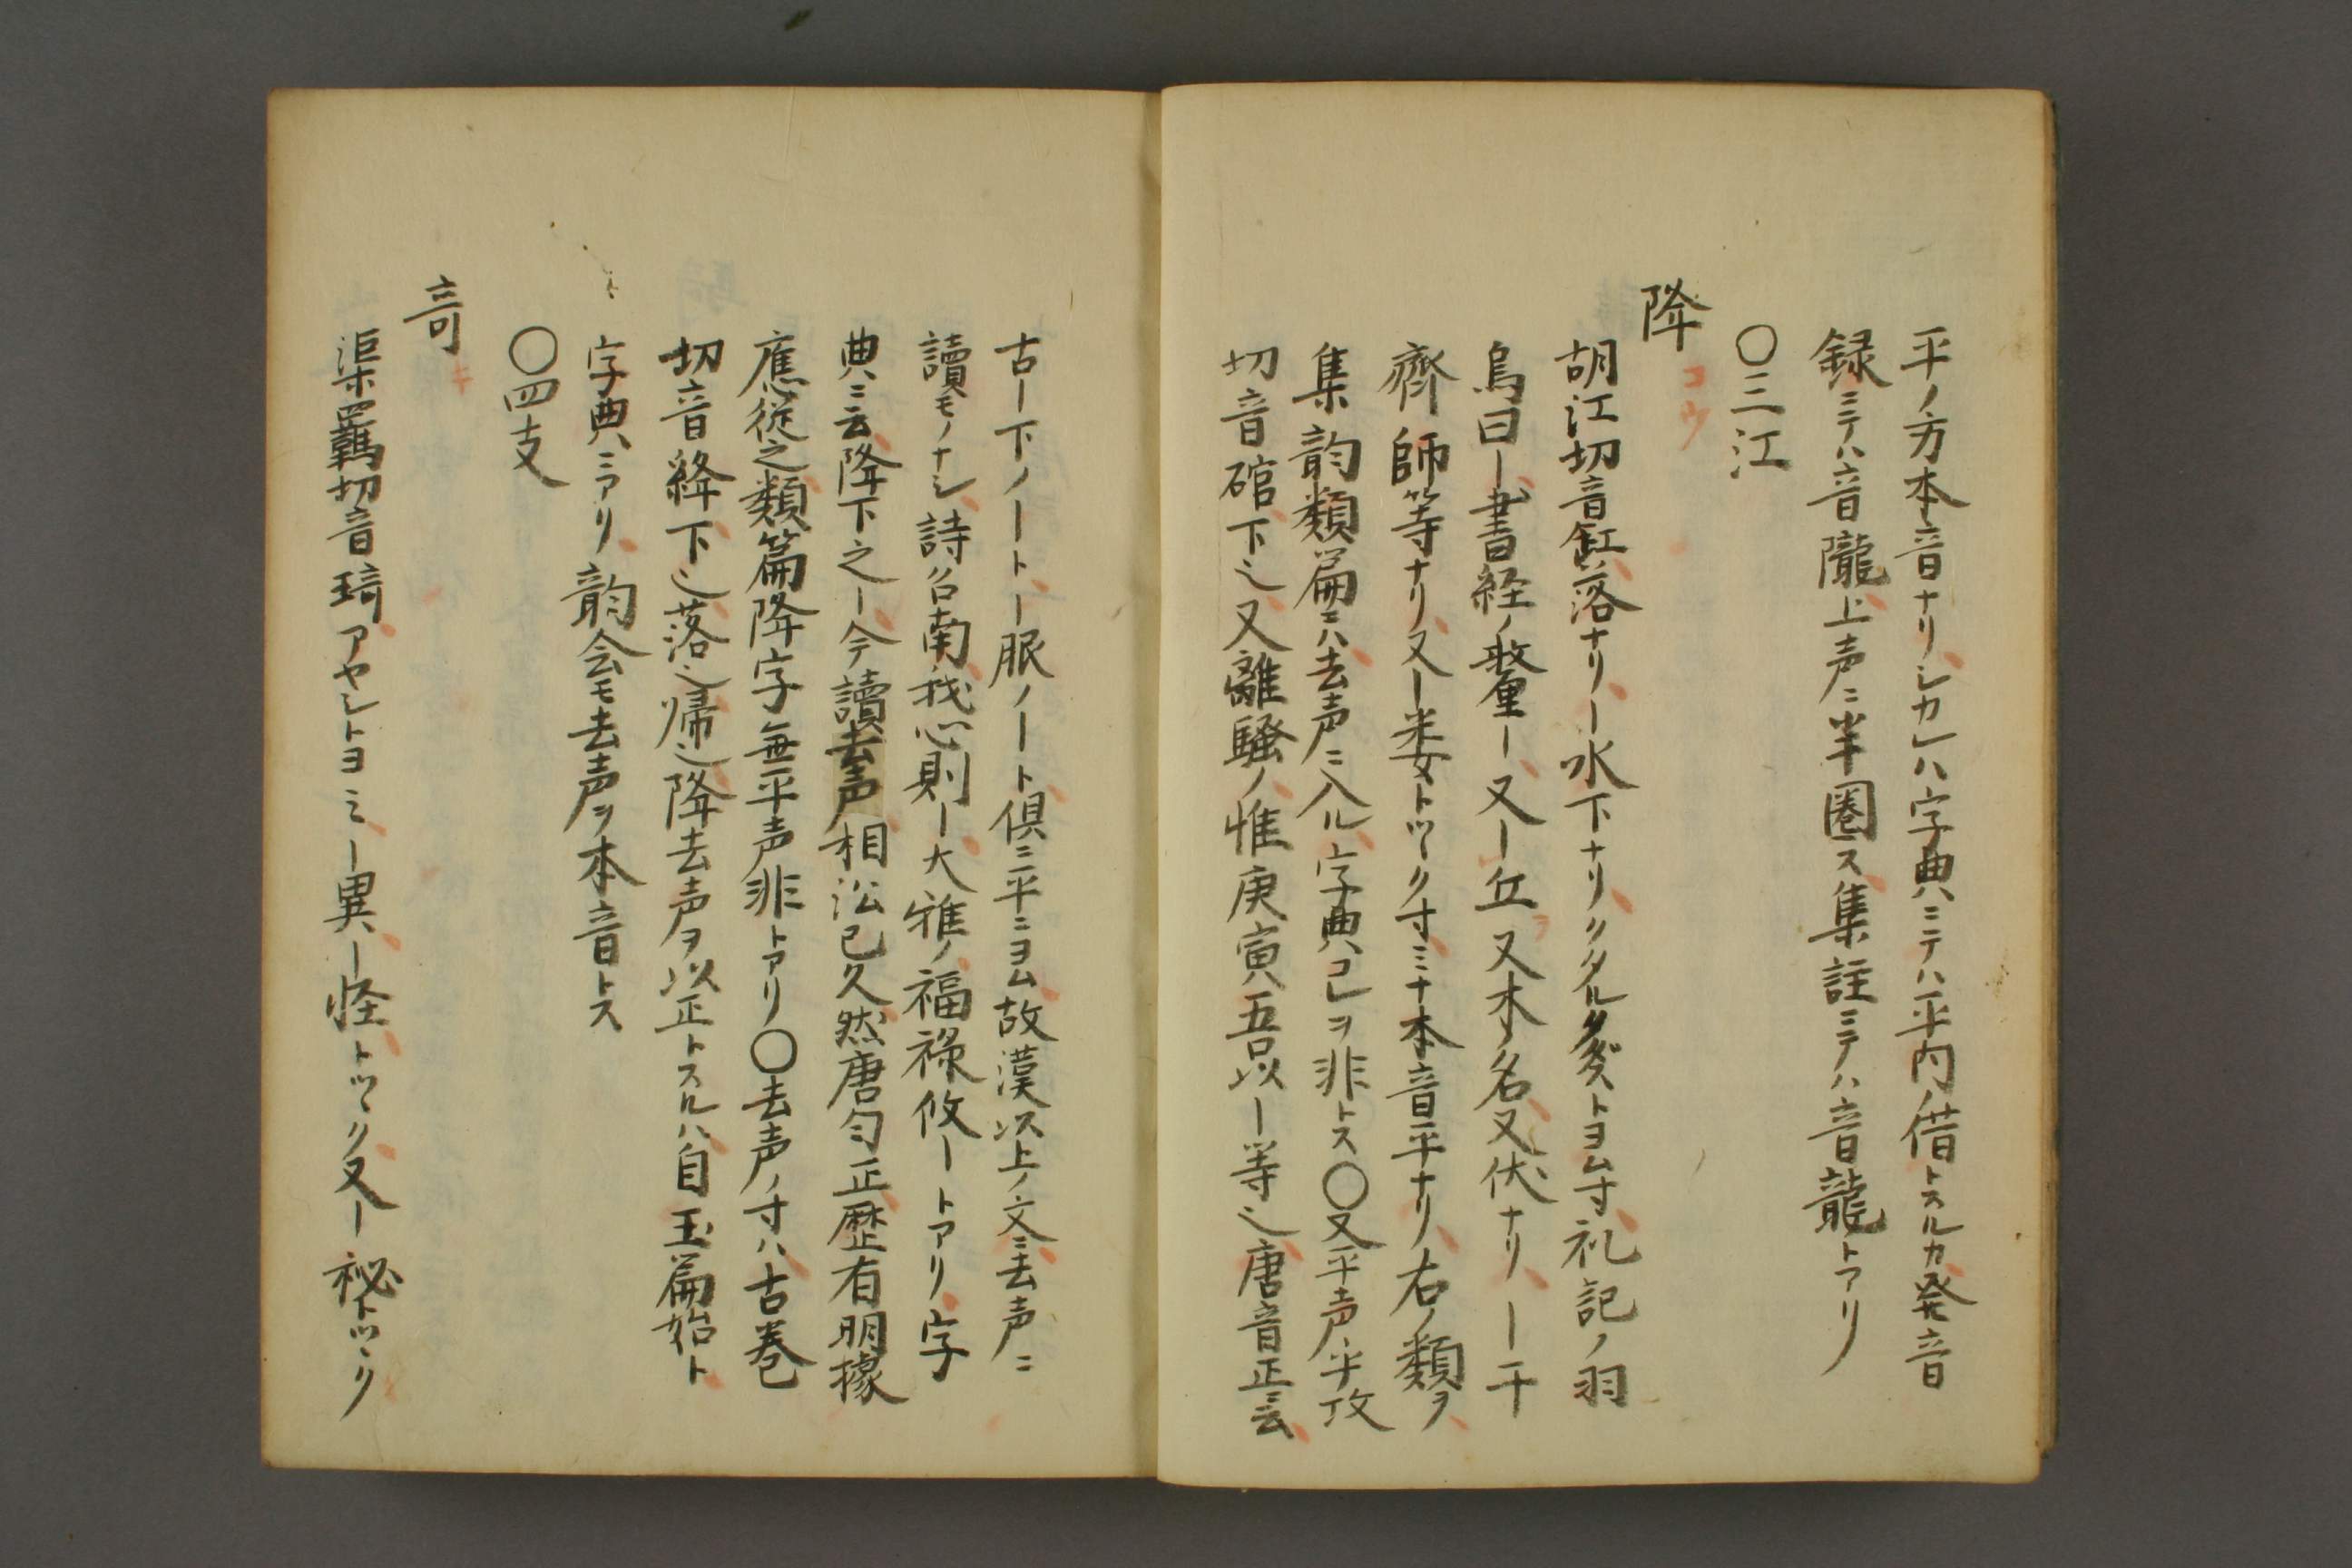 平ノ方本音ナリシカ」ハ字典ニテハ平内借トスルカ発音
録ニテハ音隴上声ニ半圏ス集註ニテハ音龍トアリ
〇三江
降 コウ
胡江切音缸落ナリー水下ナリクダルクダストヨム寸礼記ノ羽
鳥曰ー書経ノ釐ー又ー丘又木ノ名又伏ナリー干
齊師等ナリ又ー婁トツヽク寸ミナ本音平ナリ右ノ類ヲ
集韵類篇ニハ去声ニ入ル字典コレヲ非トス〇又平声乎攻
切音䃔下也又離騒ノ惟庚寅吾以ー等也唐音正ニ云
古ー下ノートー服ノート倶ニ平ニヨム故漢以上ノ文ニ去声ニ
讀モノナシ詩召南我心則ー大雅ノ福祿攸ートアリ字
典ニ云降下之ー今讀去声相沿已久然唐匀正歴有明據
應従之類篇降字無平声非トアリ〇去声ノ寸ハ古巷
切音絳下也落也帰也降去声ヲ以正トスルハ自玉篇始ト
字典ニアリ韵会モ去声ヲ本音トス
〇四支
竒 キ
渠羈切音琦アヤシトヨミー異ー怪トツヽク又ー秘トツヽク